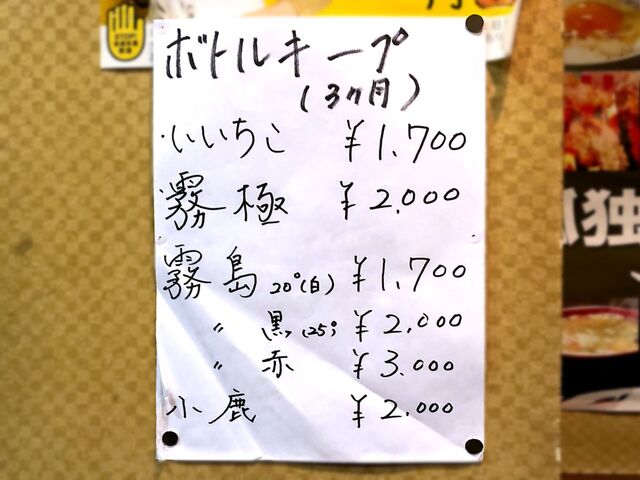 ボトルキープ
(3ヶ月)
いいちこ ¥1,700
霧極 ¥2,000
霧島 20°(白) ¥1,700
〃 黒(25°) ¥2,000
〃 赤 ¥3,000
小鹿 ¥2,000
STOP!
独